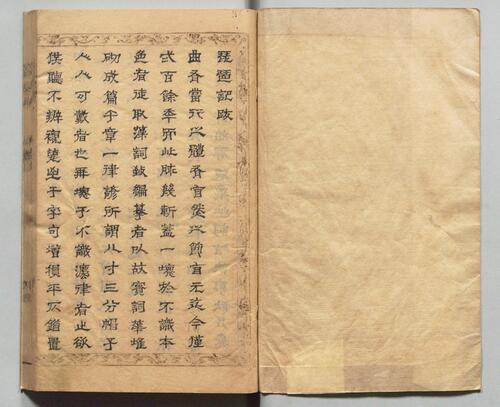 琵琶記跋
曲者當行之體者宜然之飾自元迄今僅
式百餘年而此脉幾斬蓋一壞於不識本
色者徒取藻詞致編摹者以故實詞華堆
砌成篇千章一律諺所謂八寸三分帽子
人人可戴者也再壞于不識腔律者止欲
供聽不辨襯墊迺于字句增損平仄錯置